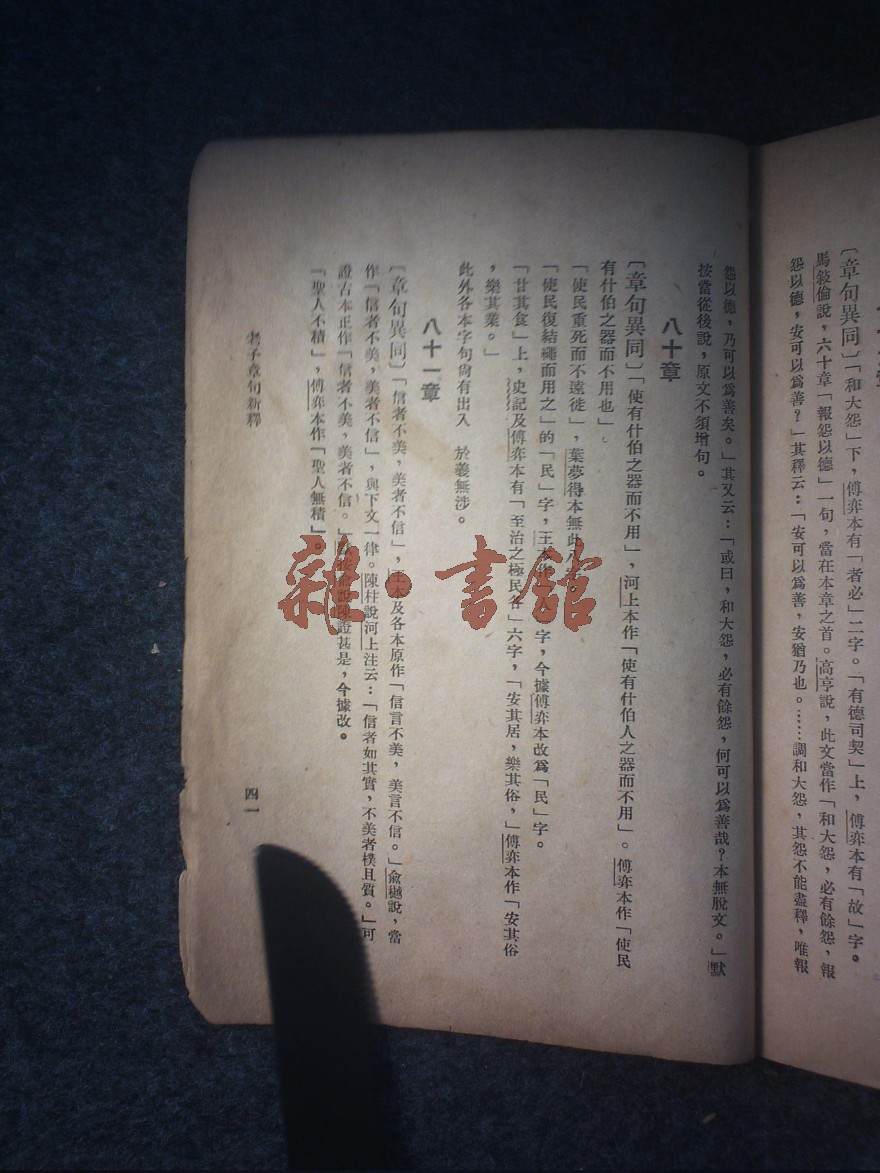 〔章句異同〕「和大怨」下，傅弈本有「者必」二字。「有德司契」上，傅弈本有「故」字。
馬敍倫說，六十章「報怨以德」一句，當在本章之首。高亨說，此文當作「和大怨，必有餘怨，報
怨以德，安可以爲善？」其釋云：「安可以爲善，安猶乃也。……調和大怨，其怨不能盡釋，唯報
怨以德，乃可以爲善矣。」其又云：「或曰，和大怨，必有餘怨，何可以爲善哉？本無脫文。」默
按當從後說，原文不須增句。
八十章
〔章句異同〕「使有什伯之器而不用」，河上本作「使有什伯人之器而不用」。傅弈本作「使民
有什伯之器而不用也」
「使民重死而不遠徙」，葉夢得本無此
「使民復結繩而用之」的「民」字，王本作 字，今據傅弈本改爲「民」字。
「甘其食」上，史記及傅弈本有「至治之極民各」六字，「安其居，樂其俗，」傅弈本作「安其俗
，樂其業。」
此外各本字句尙有出入 於義無涉。
八十一章
〔章句異同〕「信者不美，美者不信」，王本及各本原作「信言不美，美言不信。」俞樾說，當
作「信者不美，美者不信」，與下文一律。陳柱說河上注云：「信者如其實，不美者樸且質。」可
證古本正作「信者不美，美者不信。」默按俞說陳證甚是，今據改。
「聖人不積」，傅弈本作「聖人無積」。
老子章句新釋
四一
雜·書館